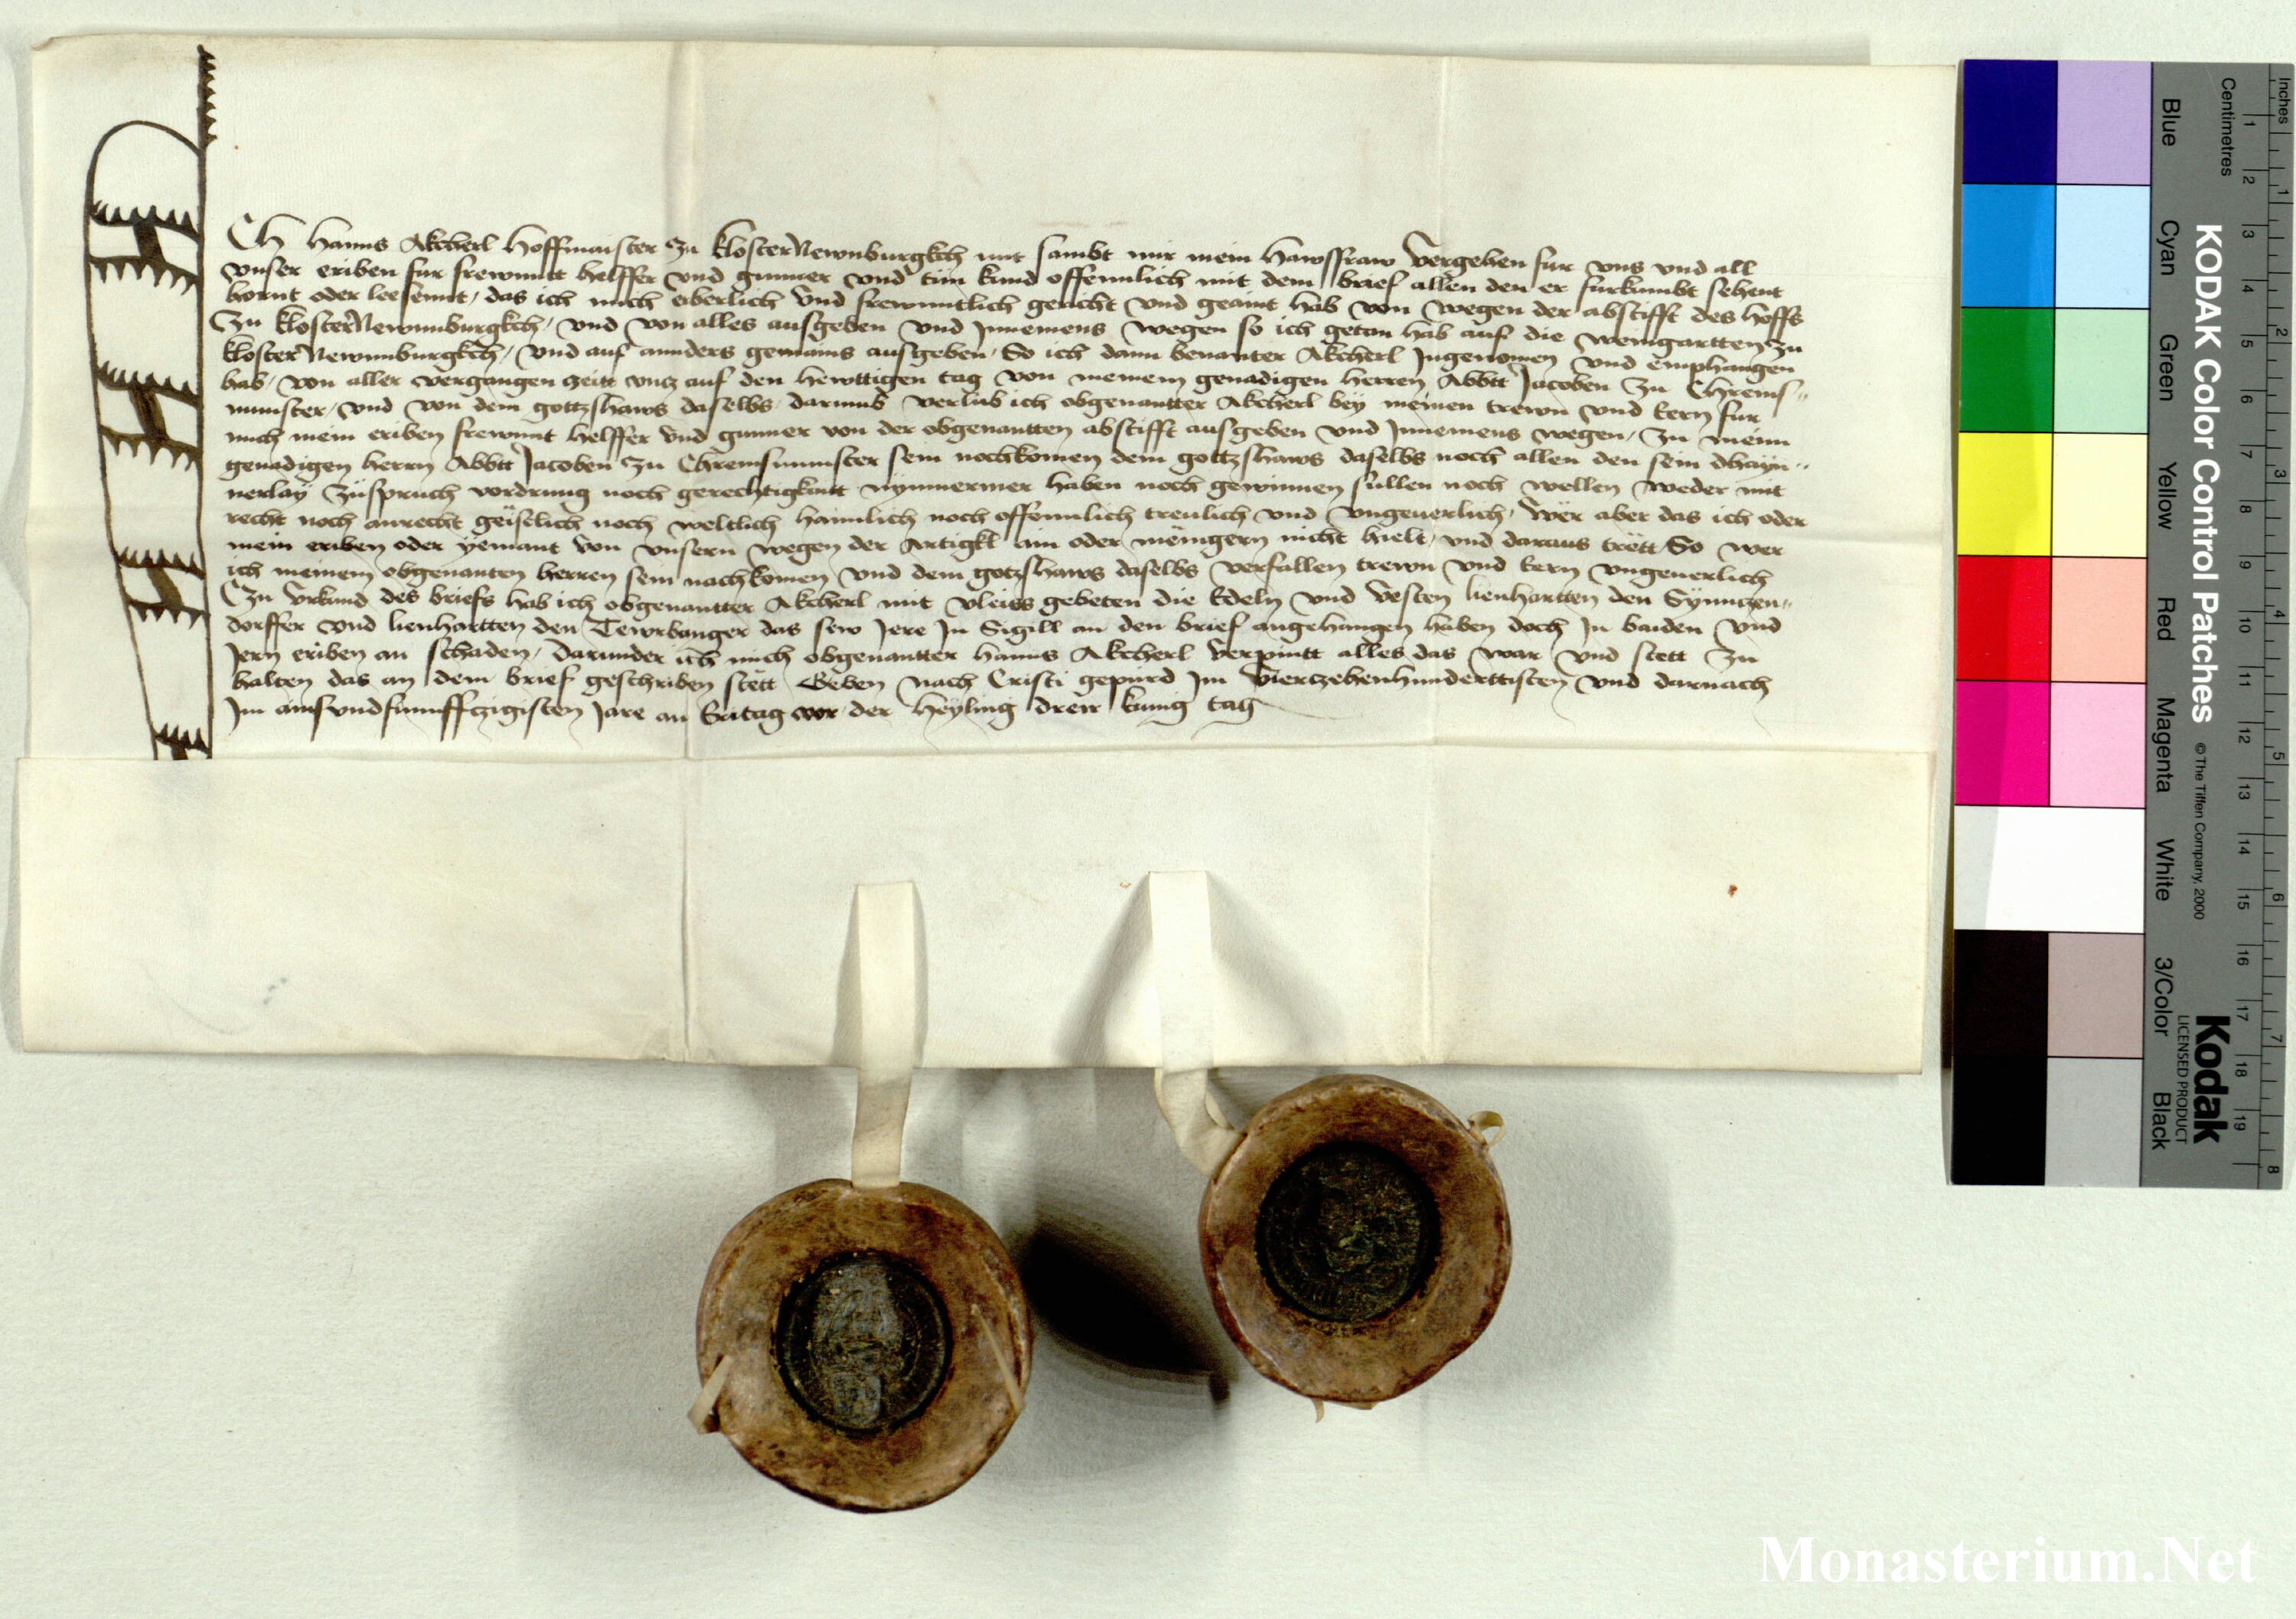 Ich Hanns Akcherl Hoffmaister zu klosterNewnburgkch mit sambt mir mein Hawsfraw Vergehen fur vns vnd all
vnser eriben fur frewnntt helffer vnd gunner vnd tun kund offennlich mit dem brief allen den er furkumbt sehent
hornt oder lesennt, das ich mich erberlich vnd frewnntlich gericht vnd geaint hab von wegen der abstifft des hoffs
Zu klosterNewnnburgkch, vnd von alles ausgeben vnd Innemens wegen so ich getan hab auf die weingartten zu
klosterNewnnburgkch, vnd auf annders gemains ausgeben, So ich dann benanter Akcherl Ingenomen vnd emphangen
hab, von aller vergangen zeitt vncz auf den hewttigen tag von meinem genadigen herren Abbtt Jacoben zu Chrems-
munster, vnd von dem gottzshaws daselbs, darumb verlub ich obgenantter Akcherl bey meinen trewn vnd eern fur
mich mein eriben frewnnt helffer vnd gunner von der obgenantten abstifft ausgeben vnd Innemens wegen, zu meinn
genadigen herrn Abbtt Jacoben zu Chremsmunster sein nochkomen dem gottzshaws daselbs noch allen den sein dhayn-
nerlay zuspruch vordrung noch gerechtigkaitt nymmermer haben noch gewinnen sullen noch wellen weder mit
recht noch anrecht geistlich noch weltlich haimlich noch offennlich treulich vnd vngeuerlich, Wer aber das ich oder
mein eriben oder yemant von vnsern wegen der Artigkl ain oder menigern nicht hielt, vnd daraus trett, So wer
ich meinem obgenanten herren sein nachkomen vnd dem gotzshaws daselbs verfallen trewn vnd eern vngeuerlich
Czu Vrkund des briefs hab ich obgenantter Akcherl mit vleiss gebeten die Edeln vnd Vesten lienhartten den Synnczen-
dorffer vnd lienhartten den Tewrbanger das sew Jere In Sigill an den brief angehangen haben doch In baiden vnd
Jern eriben an schaden, darunder ich mich obgenantter Hanns Akcherl verpintt alles das war vnd stett zu
halten das an dem brief geschriben stett Geben nach Cristi gepurd Im Vierczehenhunderttisten vnd darnach
Im ainsvndfunnffczigisten Jare an Eritag vor der Heyling dreir kunig tag
KODAK Color Control Patches
© The Tiffen Company, 2000
Kodak
LICENSED PRODUCT
Blue Cyan Green Yellow Red Magenta White 3/Color Black
Centimetres 1 2 3 4 5 6 7 8 9 10 11 12 13 14 15 16 17 18 19
Inches 1 2 3 4 5 6 7 8
Monasterium.Net